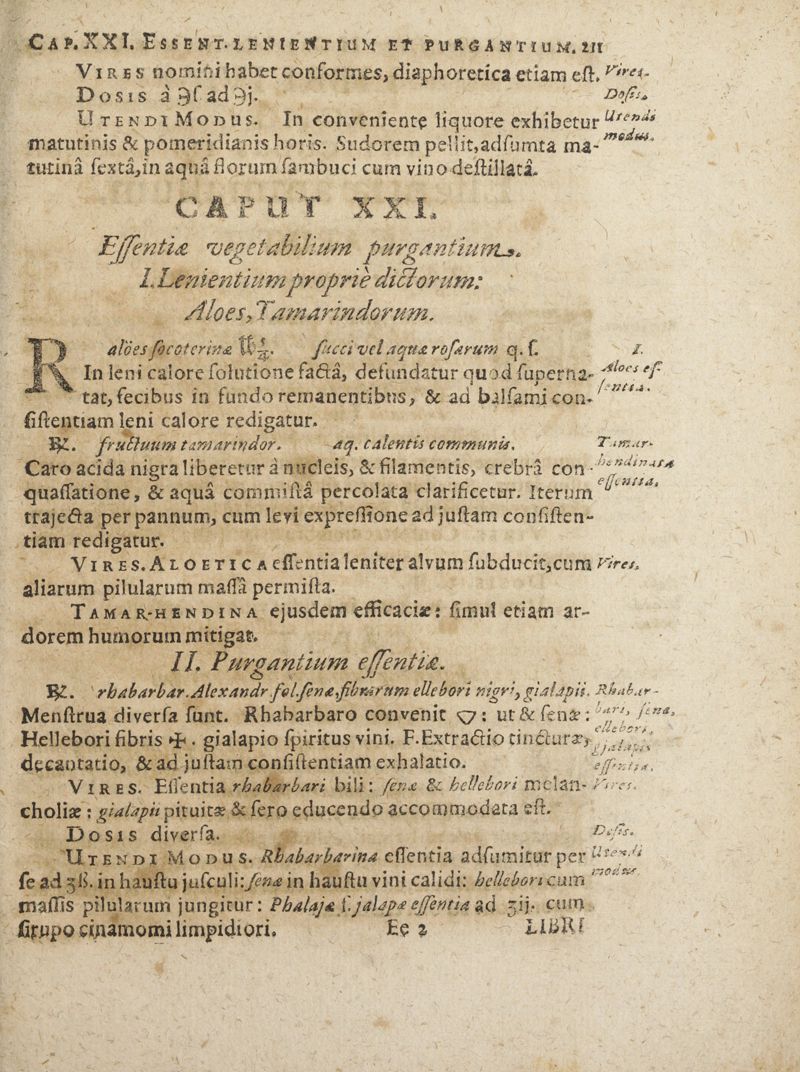 CAP. XXI. ESSENT. LENIENTIUM ET PURGANTIUM. 211
VIRES nomini habet conformes, diaphoretica etiam eſt. Vires.
DOSIS à ℈ſ ad ℈j. Doſis.
UTENDI MODUS. In conveniente liquore exhibetur Utendi
matutinis & pomeridianis horis. Sudorem pellit, adſumta ma- modus.
tutinâ ſextâ, in aquâ florum ſambuci cum vino deſtillatâ.
CAPUT XXI.
Eſſentiæ vegetabilium purgantium.
I. Lenientium proprie dictorum:
Aloes, Tamarindorum.
R aloes ſocoterinæ ℔ ſucci vel aquæ roſarum q. ſ. I.
In leni calore ſolutione factâ, defundatur quod ſuperna- Aloes eſ-
tat, fecibus in fundo remanentibus, & ad balſami con- ſentia.
ſiſtentiam leni calore redigatur.
℞. fructuum tamarindor. aq. calentis communis. Tamar-
Caro acida nigra liberetur à nucleis, & filamentis, crebrâ con- hendinara
quaſſatione, & aquâ commiſtâ percolata clarificetur. Iterum eſſentia.
trajecta per pannum, cum levi expreſſione ad juſtam conſiſten-
tiam redigatur.
VIRES. ALOETICA eſſentia leniter alvum ſubducit, cum Vires.
aliarum pilularum maſſâ permiſta.
TAMAR-HENDINA ejusdem efficaciæ: ſimul etiam ar-
dorem humorum mitigat.
II. Purgantium eſſentiæ.
℞. rhabarbar. Alexandr. fol. ſenæ, fibrarum ellebori nigri, gialapii. Rhabar-
Menſtrua diverſa ſunt. Rhabarbaro convenit 🜄: ut & ſenæ: bari, ſenæ,
Hellebori fibris 🜊. gialapio ſpiritus vini. F. Extractio tincturæ, ellebori, gjalapii
decantatio, & ad juſtam conſiſtentiam exhalatio. eſſentia.
VIRES. Eſſentia rhabarbari bili: ſenæ & hellebori melan- Vires.
choliæ: gialapii pituitæ & ſero educendo accommodata eſt.
DOSIS diverſa. Doſis.
UTENDI MODUS. Rhabarbarina eſſentia adſumitur per Utendi
ſe ad ʒß. in hauſtu juſculi: ſenæ in hauſtu vini calidi: hellebori cum modus
maſſis pilularum jungitur: Phalajæ ſ. jalapæ eſſentia ad ʒij. cum
ſirupo cinamomi limpidiori. Ee 2 LIBRI